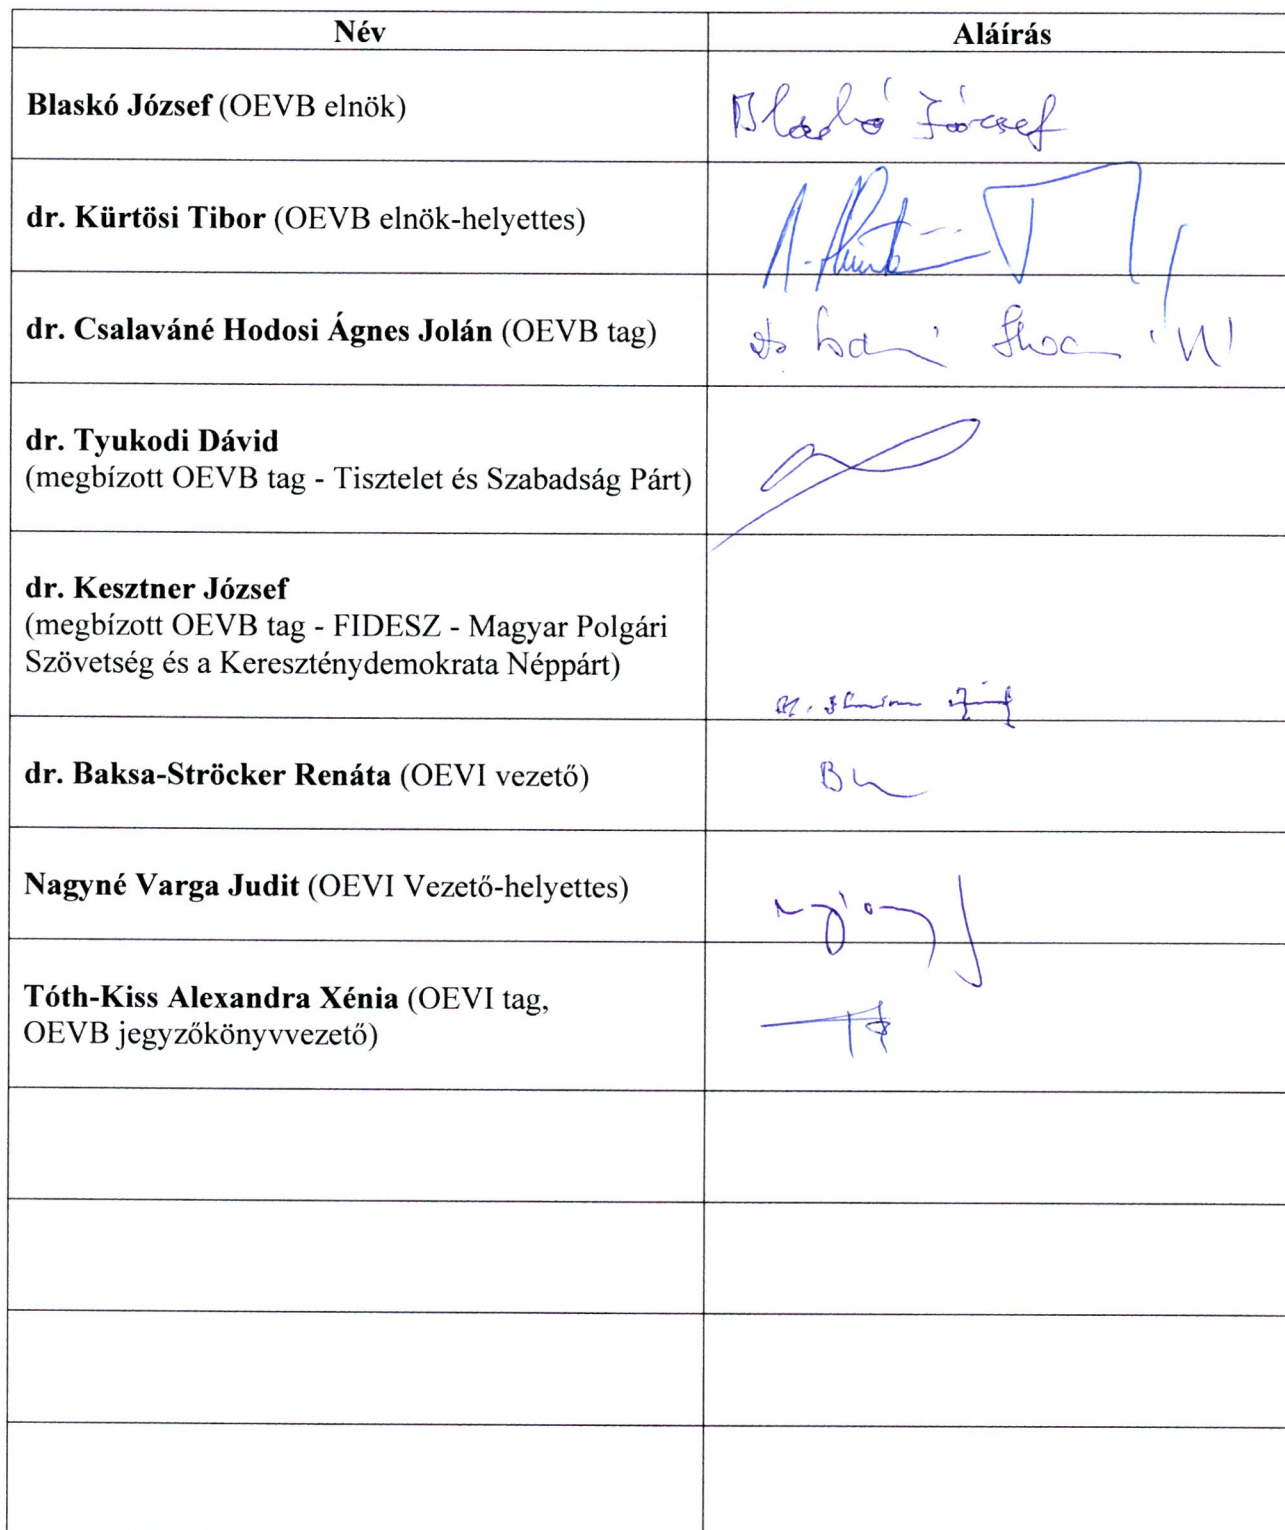 Név
Aláírás
Blaskó József (OEVB elnök)
Blaskó József
dr. Kürtösi Tibor (OEVB elnök-helyettes)
dr. Csalaváné Hodosi Ágnes Jolán (OEVB tag)
dr. Tyukodi Dávid
(megbízott OEVB tag - Tisztelet és Szabadság Párt)
dr. Kesztner József
(megbízott OEVB tag - FIDESZ - Magyar Polgári
Szövetség és a Kereszténydemokrata Néppárt)
dr. Baksa-Ströcker Renáta (OEVI vezető)
Nagyné Varga Judit (OEVI Vezető-helyettes)
Tóth-Kiss Alexandra Xénia (OEVI tag,
OEVB jegyzőkönyvvezető)